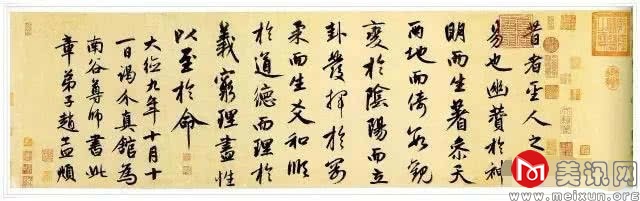 昔者聖人之
易也幽贊於神
明而生蓍參天
兩地而倚數觀
變於陰陽而立
卦發揮於剛
柔而生爻和順
於道德而理於
義窮理盡性
以至於命
大德九年十月十
一日謁介真館為
南谷尊師書此
章弟子趙孟頫
美讯网
www.meixun.org